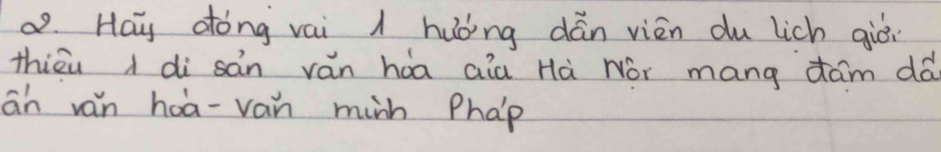 2. Hãy đóng vai 1 hướng dẫn viên du lịch giới
thiệu 1 di sản văn hóa của Hà Nội mang đậm dấ
ấn văn hoà - văn minh Pháp